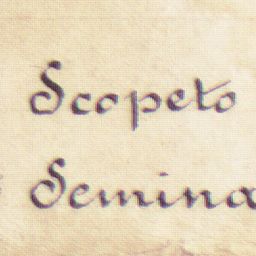 Scopeto
Semina